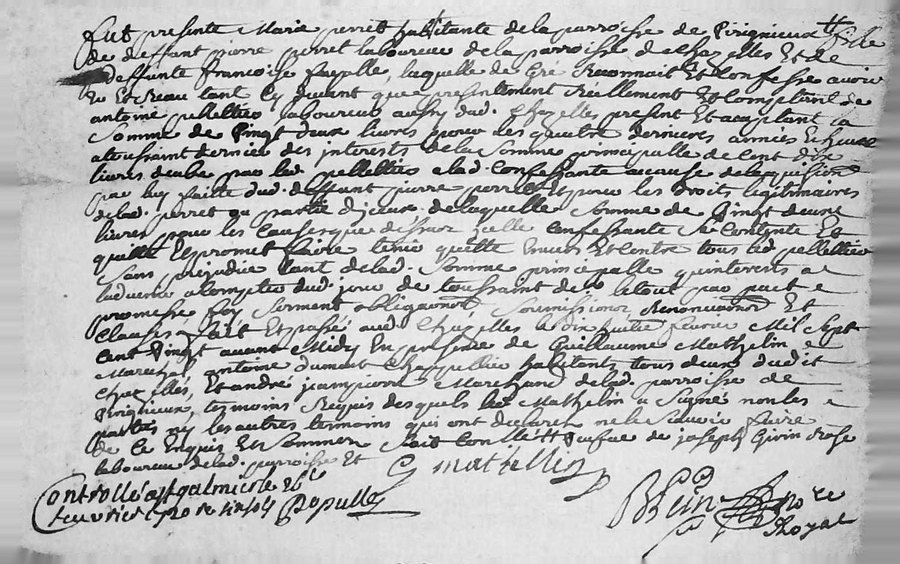 fut presente Marie perret habitante de la parroisse de Pirignieux fille
de deffunt pierre perret laboureur de la parroisse de chazelles Et de
deffunte francoise fayolle, laquelle de Gré Reconnait Et Confesse avoir
Et Receu tant cy devant que presentement Reellement Et Comptant de
antoine pelletier laboureur aud. Chazelles present Et acceptant la
Somme de Vingt deux livres pour les quatre dernieres années Escheues
a toussaint dernier des interests de la Somme principalle de Cent dix
livres deube par led pelletier a lad. Confessante a cause de
par luy faitte dud. deffunt pierre perret Et pour les droits legitimaires
de lad. perret ou partie d'iceux de laquelle Somme de Vingt deux
livres pour les Causes que dessus icelle Confessante Se Contente Et
quitte Et promet faire tenir quitte Envers Et Contre tous led pelletier
Sans prejudice tant de lad. Somme principalle qu'interests a
advenir a Compter dud. jour de toussaint der le tout par pacte
promesse foy Serment obligaons Soumissions Renonciaons Et
Clauses fait Et passé aud Chazelles le dix huit fevrier Mil Sept
Cent Vingt avant Midy En presence de Guillaume Mathelin
Marechal, antoine dumont Chappellier habitants tous deux dudit
Chazelles, Et andré jeanpierre Marchand de lad. parroisse de
Virignieux, temoins Requis desquels led Mathelin a Signé non les
parties ny les autres temoins qui ont declaré ne le Sçavoir faire
de ce Enquis Et Sommés de joseph
laboureur de lad. parroisse Et
G mathellin
Controllé a St galmier le
fevrier 1720 Popullo
Royal